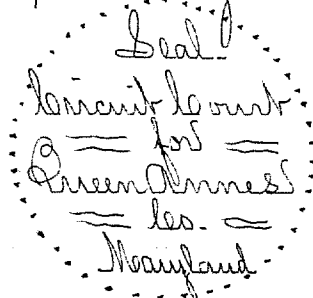 Seal
Circuit Court
for
Queen Annes
Co.
Maryland